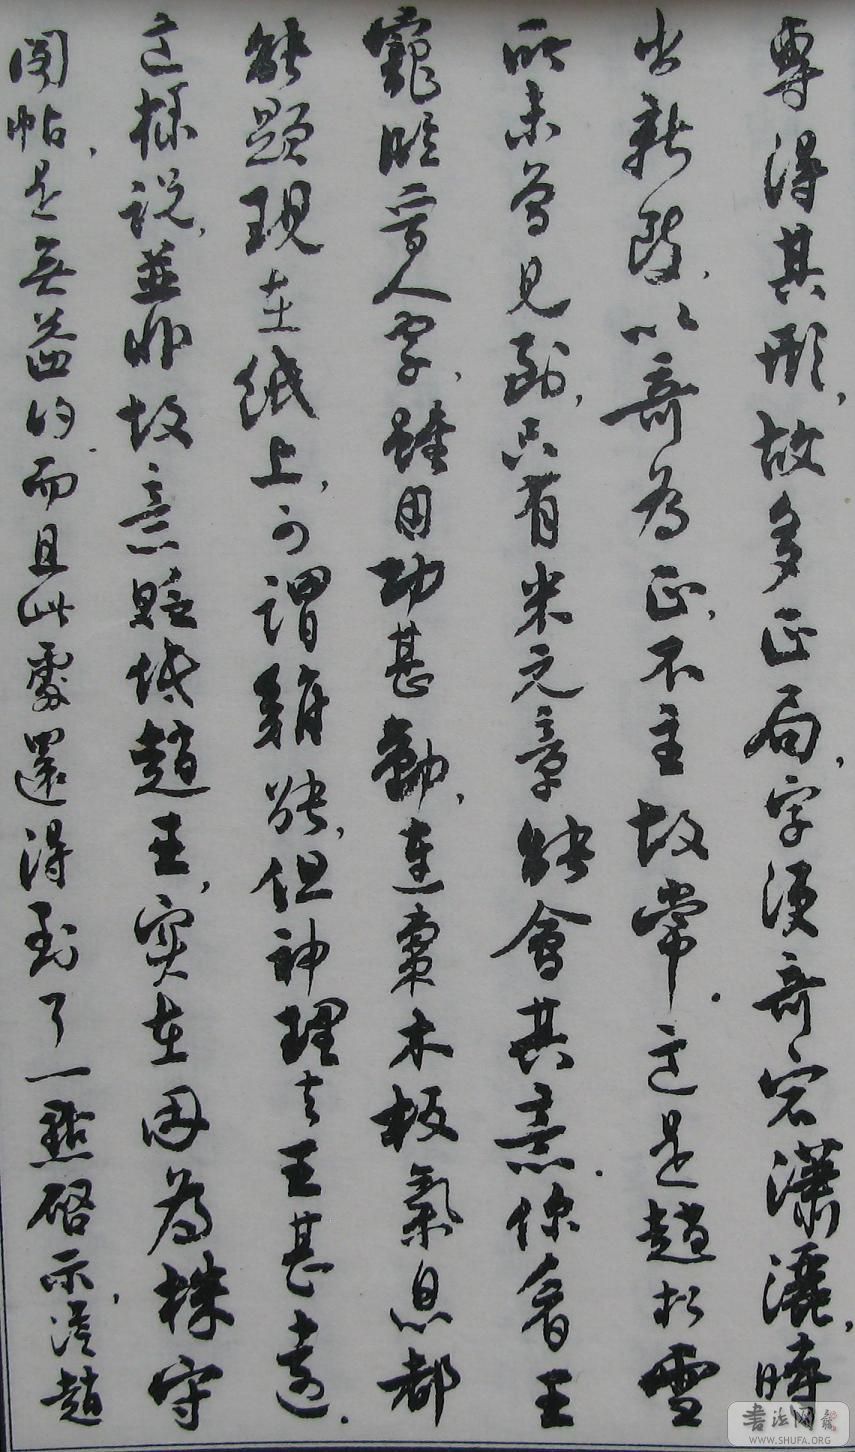 專得其形，故多正局，字便奇宕瀟灑，時
出新致，以奇為正，不主故常。這是趙松雪
所未曾見到，只有米元章能會其意。你看王
寵臨晉人字，雖用功甚勤，連棗木板氣息都
能顯現在紙上，可謂難能，但神理去王甚遠。
這樣說，並非故意貶低趙王，實在因為株守
閣帖，是無益的。而且此處還得到了一點啓示，從趙
書法网
WWW.SHUFA.ORG